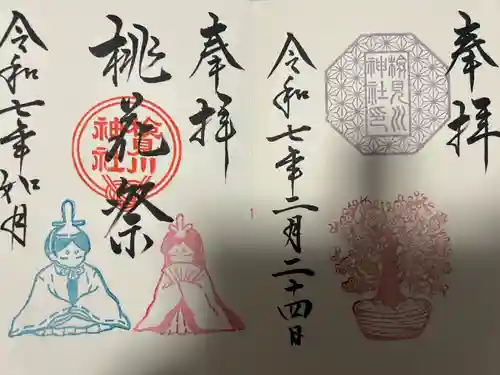 奉拝
検見川
神社印
令和七年二月二十四日
奉拝
桃花祭
検見川
神社
令和七年如月